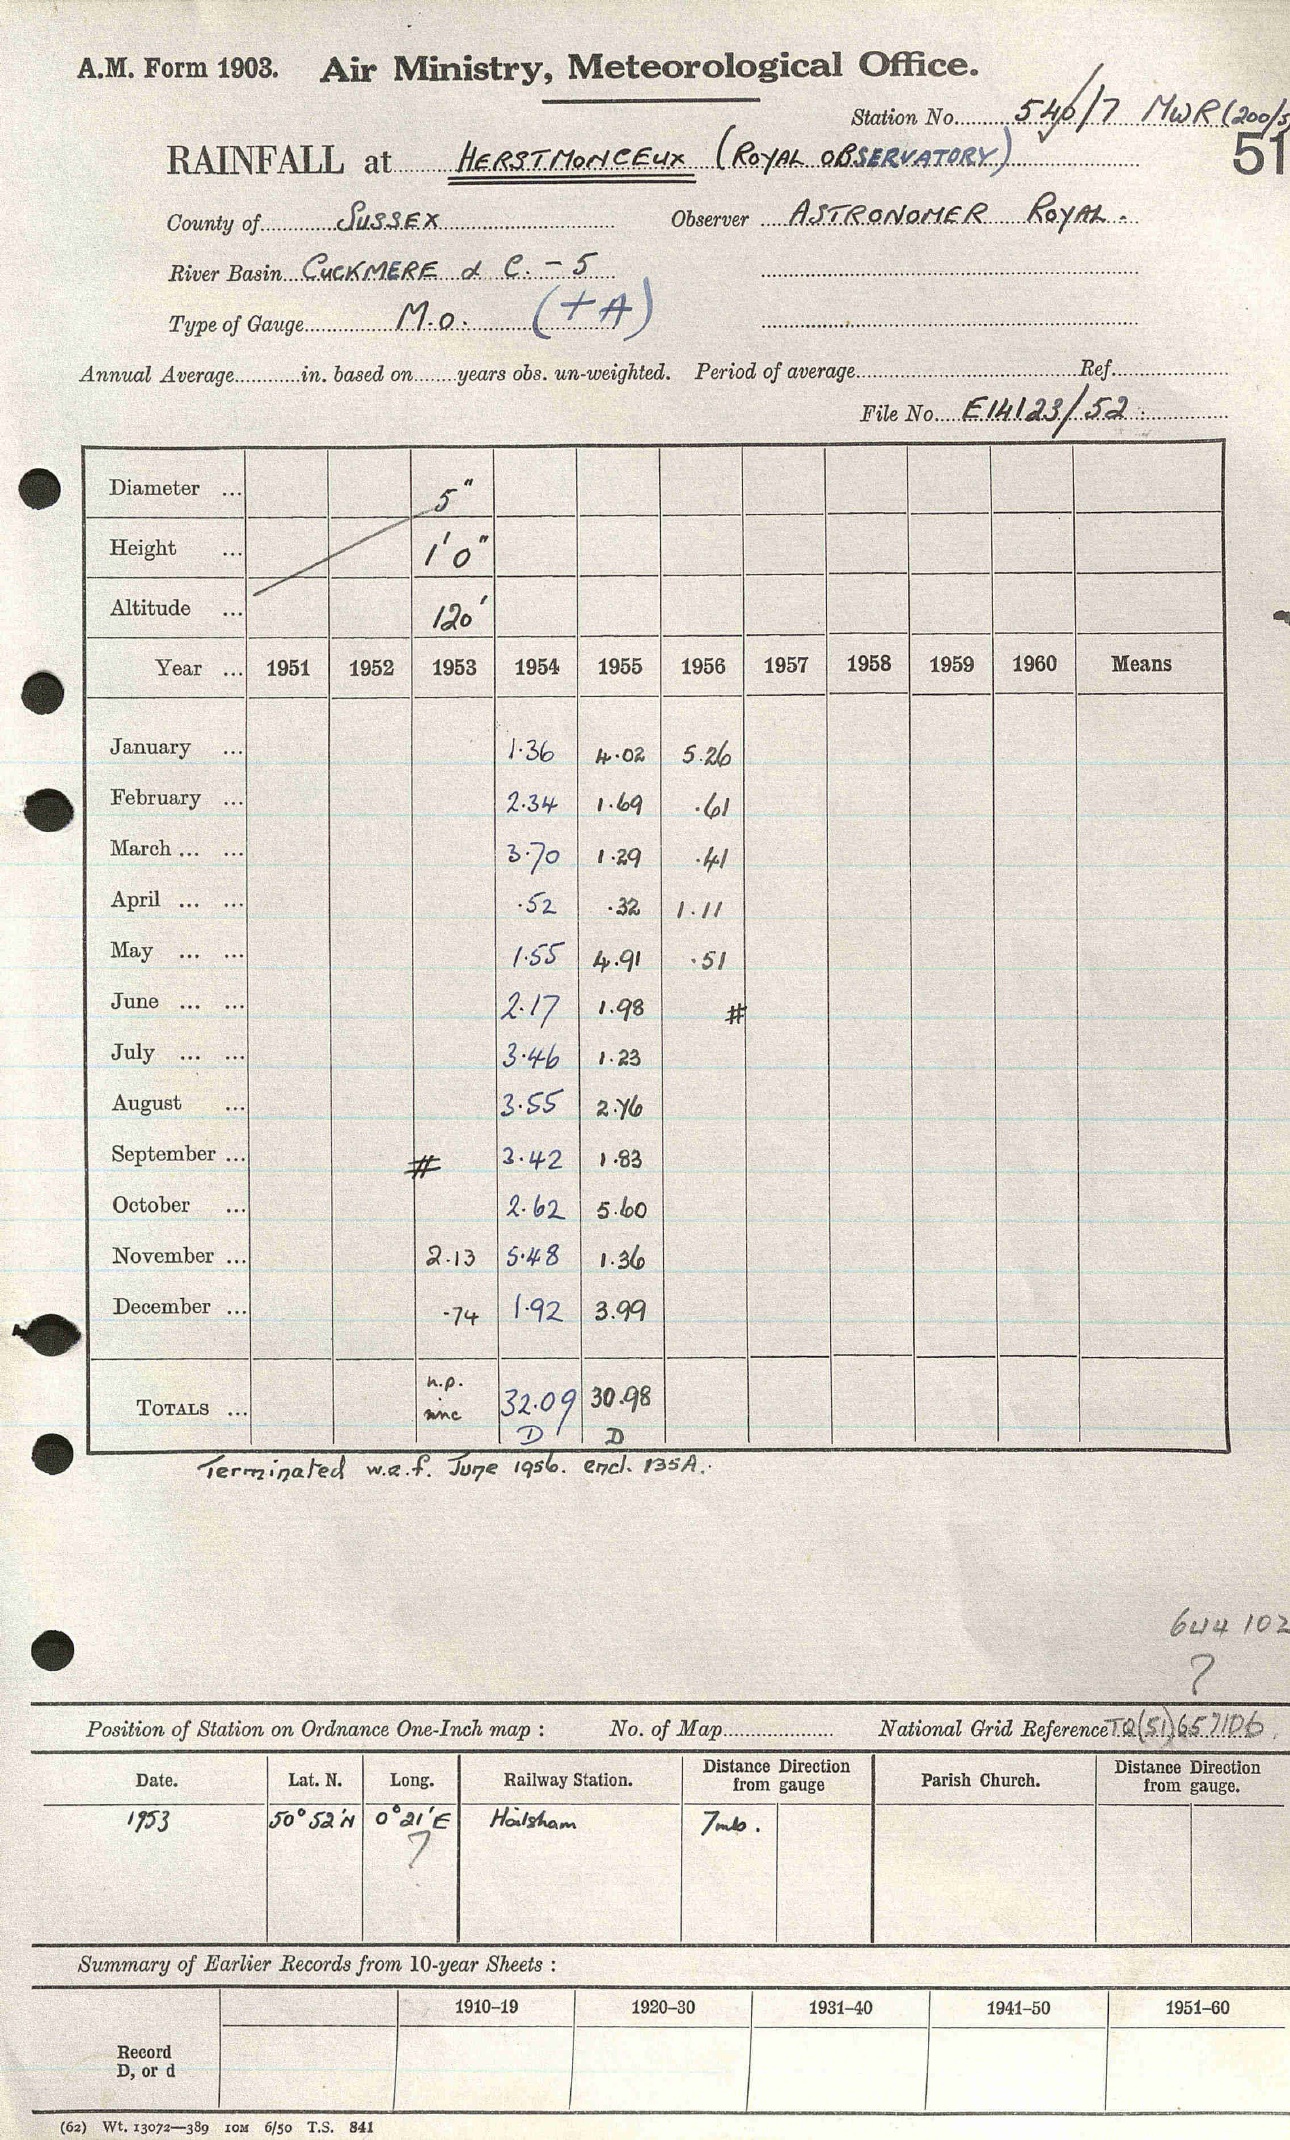 A.M. Form 1903. Air Ministry, Meteorological Office.
Station No. 540/7 MWR (200/5
51
RAINFALL at HERSTMONCEUX (ROYAL OBSERVATORY)
County of SUSSEX Observer ASTRONOMER ROYAL.
River Basin CUCKMERE & C. - 5
Type of Gauge M.O. (+A)
Annual Average in. based on years obs. un-weighted. Period of average Ref.
File No. E14123/52.
Diameter ... 5"
Height ... 1'0"
Altitude ... 120'
Year ... 1951 1952 1953 1954 1955 1956 1957 1958 1959 1960 Means
January ... 1.36 4.02 5.26
February ... 2.34 1.69 .61
March ... ... 3.70 1.29 .41
April ... ... .52 .32 1.11
May ... ... 1.55 4.91 .51
June ... ... 2.17 1.98 #
July ... ... 3.46 1.23
August ... 3.55 2.76
September ... # 3.42 1.83
October ... 2.62 5.60
November ... 2.13 5.48 1.36
December ... .74 1.92 3.99
n.p.
TOTALS ... inc 32.09 30.98
D D
Terminated w.e.f. June 1956. encl. 135A.
644 102
?
Position of Station on Ordnance One-Inch map : No. of Map National Grid Reference TQ(51)657106.
Date. Lat. N. Long. Railway Station. Distance from gauge Direction Parish Church. Distance from gauge. Direction
1953 50° 52'N 0° 21'E Hailsham
?
Summary of Earlier Records from 10-year Sheets :
1910–19 1920–30 1931–40 1941–50 1951–60
Record
D, or d
(62) Wt. 13072—389 10M 6/50 T.S. 841